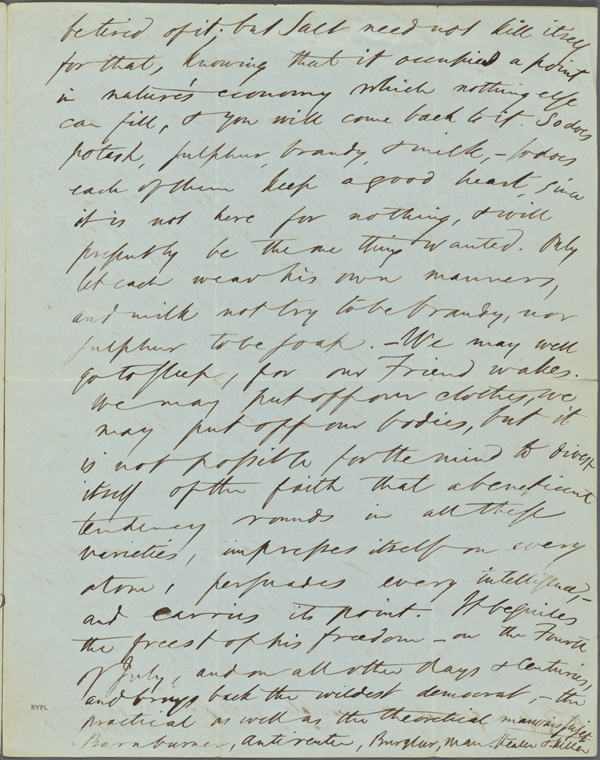 be tired of it; but Salt need not kill itself
for that, knowing that it occupied a point
in nature's economy which nothing else
can fill, & you will come back to it. So does
potash, sulphur, brandy, & milk, – so does
each of them keep a good heart, since
it is not here for nothing, & will
presently be the one thing wanted. Only
let each wear his own manners,
and milk not try to be brandy, nor
sulphur to be soap. – We may well
go to sleep, for our Friend wakes.
We may put off our clothes, we
may put off our bodies, but it
is not possible for the mind to divest
itself of the faith that a beneficent
tendency rounds in all these
varieties, impresses itself on every
atom, persuades every intelligence,–
and carries its point. It beguiles
the freest of his freedom – on the Fourth
of July, and on all other days & centuries,
and brings back the wildest democrat, – the
practical as well as the theoretical mauvais sujet
Barnburner, Antirenter, Burglar, Man Stealer & Killer
NYPL